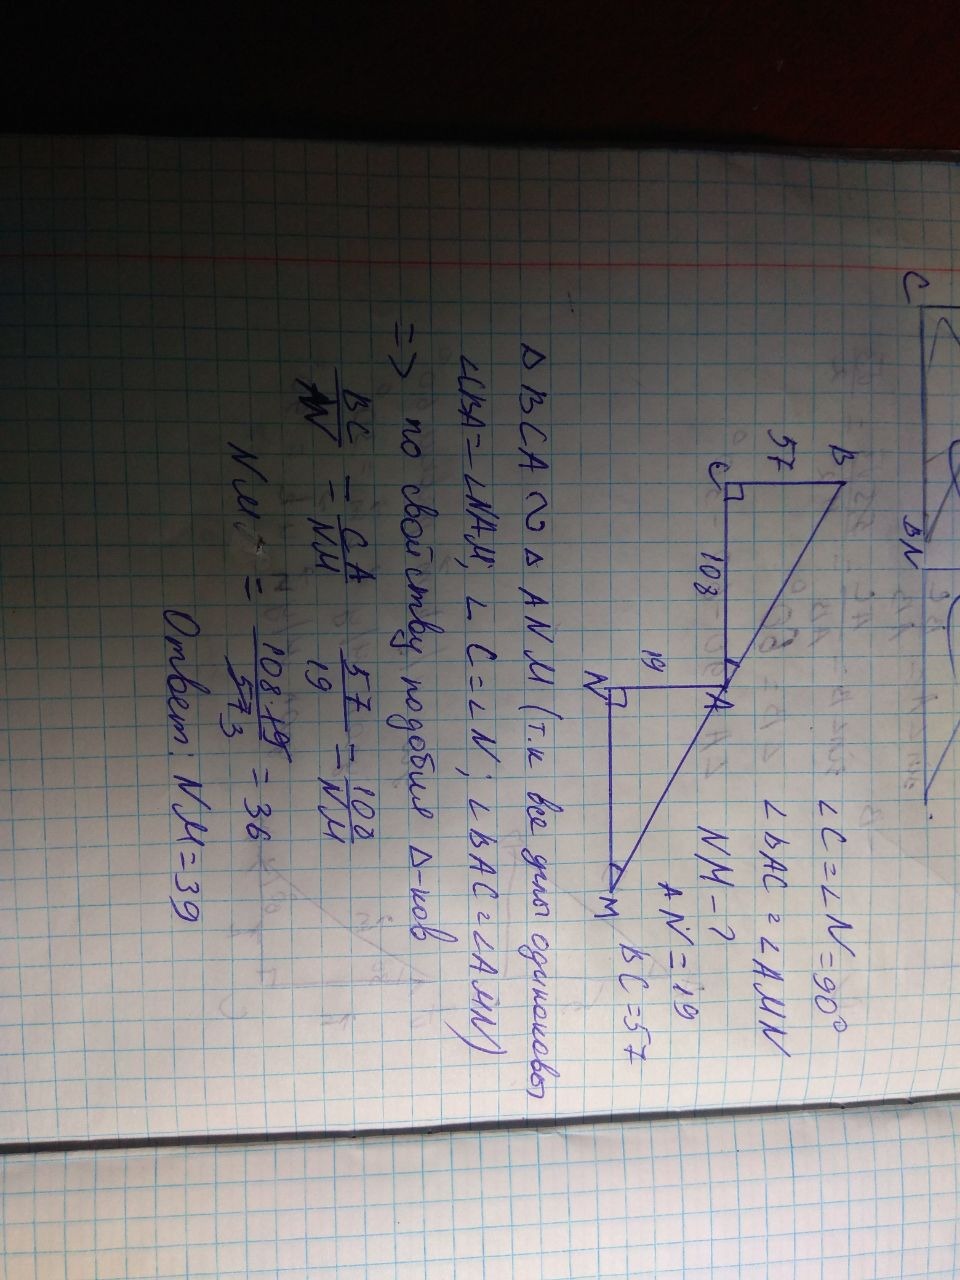 C
BN
∠C = ∠N = 90°
∠BAC = ∠AMN
NM - ?
AN = 19
BC = 57
B
57
C
108
A
19
N
M
Δ BCA ∾ Δ ANM (т.к все углы одинаковы
∠CBA = ∠NAM; ∠C = ∠N; ∠BAC = ∠AMN)
=> по свойству подобия Δ-ков
BC/AN = CA/NM 57/19 = 108/NM
NM = 108·19/57 3 = 36
Ответ: NM = 39